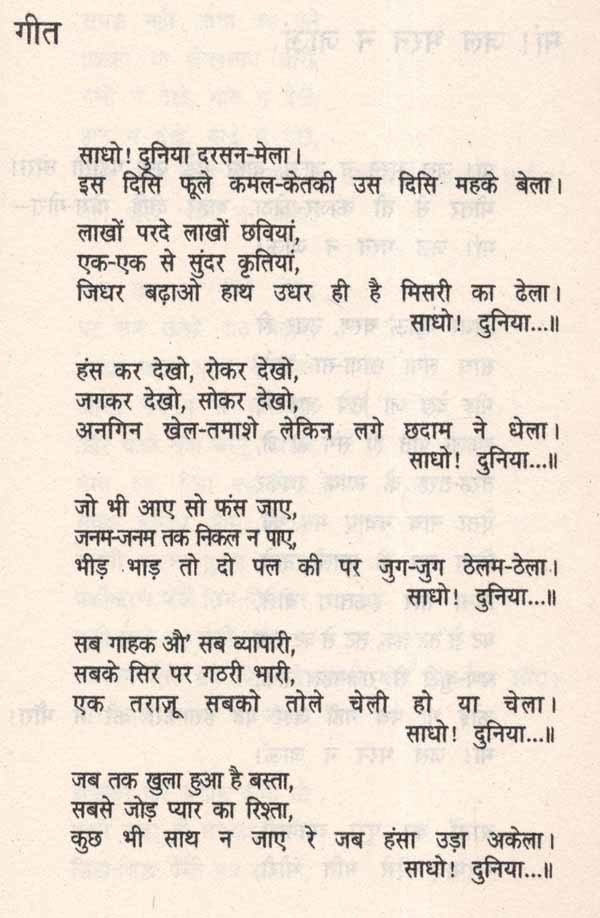 गीत
साधो! दुनिया दरसन-मेला।
इस दिसि फूले कमल-केतकी उस दिसि महके बेला।
लाखों परदे लाखों छवियां,
एक-एक से सुंदर कृतियां,
जिधर बढ़ाओ हाथ उधर ही है मिसरी का ढेला।
साधो! दुनिया...॥
हंस कर देखो, रोकर देखो,
जगकर देखो, सोकर देखो,
अनगिन खेल-तमाशे लेकिन लगे छदाम ने धेला।
साधो! दुनिया...॥
जो भी आए सो फंस जाए,
जनम-जनम तक निकल न पाए,
भीड़ भाड़ तो दो पल की पर जुग-जुग ठेलम-ठेला।
साधो! दुनिया...॥
सब गाहक औ' सब व्यापारी,
सबके सिर पर गठरी भारी,
एक तराज़ू सबको तोले चेली हो या चेला।
साधो! दुनिया...॥
जब तक खुला हुआ है बस्ता,
सबसे जोड़ प्यार का रिश्ता,
कुछ भी साथ न जाए रे जब हंसा उड़ा अकेला।
साधो! दुनिया...॥